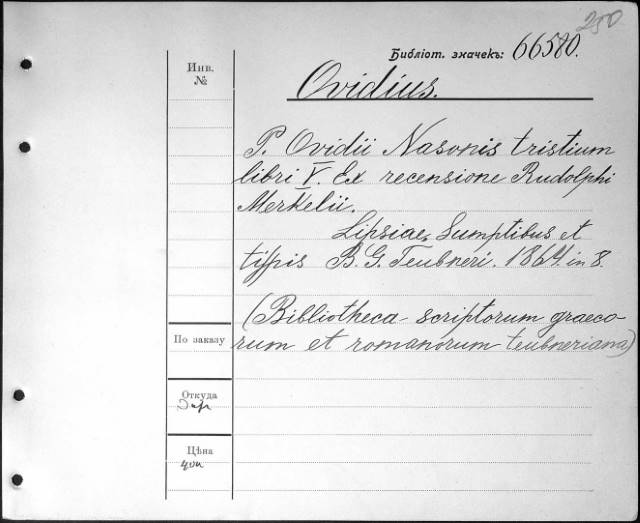 250.
Библіот. значекъ: 66580.
Инв.
№
Ovidius.
P. Ovidii Nasonis tristium
libri V. Ex recensione Rudolphi
Merkelii.
Lipsiae, Sumptibus et
typis B. G. Teubneri. 1864. in 8.
(Bibliotheca scriptorum graeco-
rum et romanorum teubneriana)
По заказу
Откуда
Цѣна